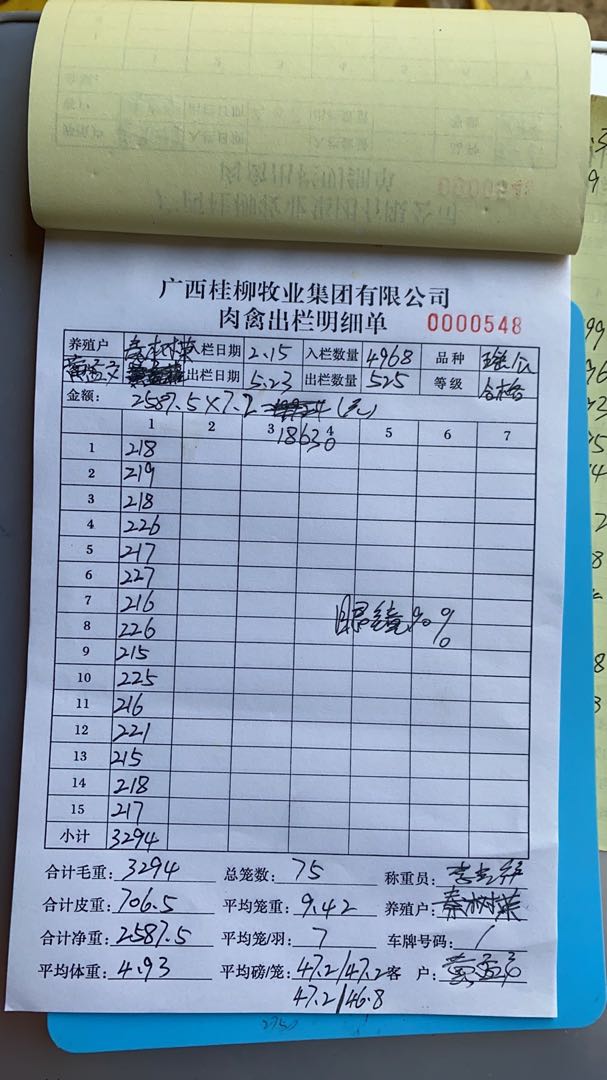 广西桂柳牧业集团有限公司
肉禽出栏明细单 0000548
养殖户 秦树荣 入栏日期 2.15 入栏数量 4968 品种
出栏日期 5.23 出栏数量 525 等级 合格
金额: 2587.5×7.2 (元)
18630
1 2 3 4 5 6 7
1 218
2 219
3 218
4 226
5 217
6 227
7 216
8 226
9 215
10 225
11 216
12 221
13 215
14 218
15 217
小计 3294
合计毛重: 3294 总笼数: 75 称重员:
合计皮重: 706.5 平均笼重: 9.42 养殖户: 秦树荣
合计净重: 2587.5 平均笼/羽: 7 车牌号码: /
平均体重: 4.93 平均磅/笼: 47.2/47.2 客 户:
47.2/46.8